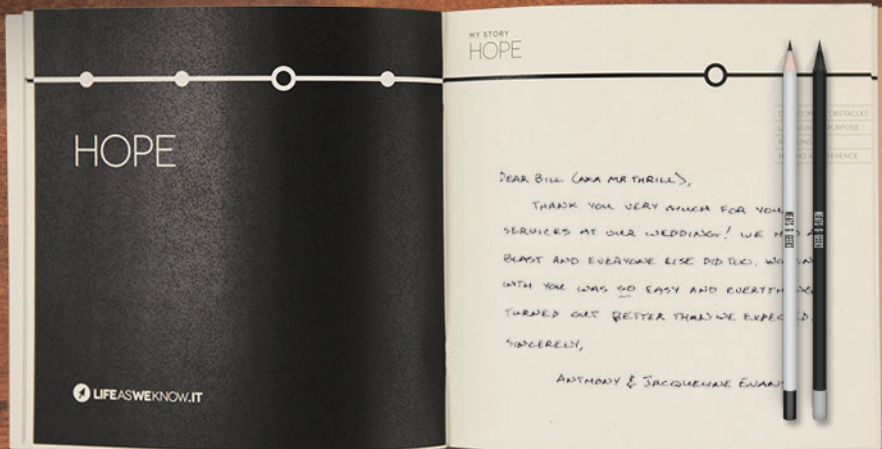 HOPE
LIFEASWEKNOW.IT
MY STORY
HOPE
OBSTACLES
PURPOSE
DEAR BILL (AKA MR THRILL),
THANK YOU VERY MUCH FOR YOU
SERVICES AT OUR WEDDING! WE H
BLAST AND EVERYONE ELSE DID TOO. WO
WITH YOU WAS SO EASY AND EVERYTH
TURNED OUT BETTER THAN WE EXPEC
SINCERELY,
ANTHONY & JACQUELINE EVANS